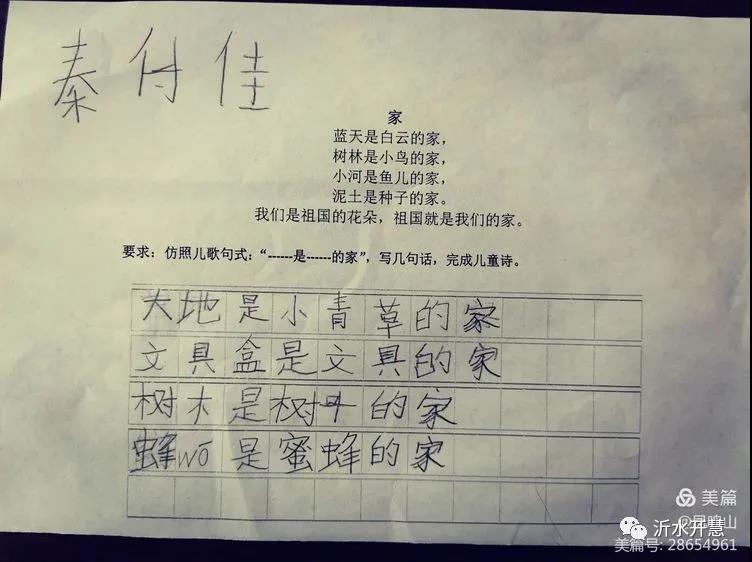 秦付佳
家
蓝天是白云的家，
树林是小鸟的家，
小河是鱼儿的家，
泥土是种子的家。
我们是祖国的花朵，祖国就是我们的家。
要求：仿照儿歌句式：“------是------的家”，写几句话，完成儿童诗。
大地是小青草的家
文具盒是文具的家
树木是树叶的家
蜂wō是蜜蜂的家
美篇
沂水开慧
美篇号：28654961